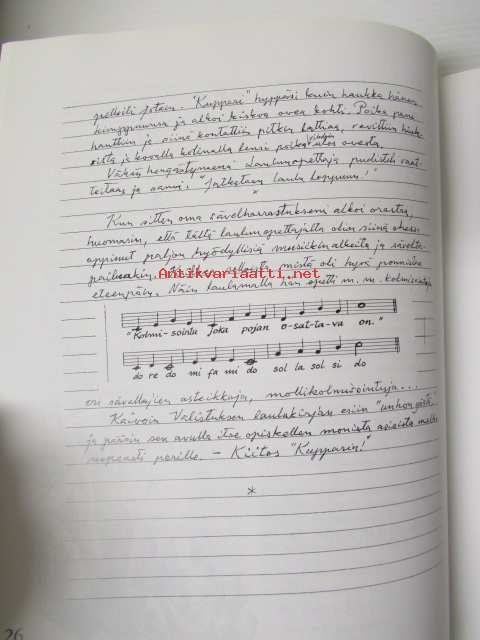 pelleili jotain. "Kuppari" hyppäsi kuin haukka hänen
kimppuunsa ja alkoi kiskoa ovea kohti. Poika pani
hanttiin ja siinä kontattiin pitkin lattiaa,
ja kovalla kolinalla lensi poika viimein ulos ovesta.
Väkeä hengästyneenä laulunopettaja pudisteli vaat-
teitaan ja sanoi: "Jatketaan laulu loppuun!"
*
Kun sitten oma sävelharrastukseni alkoi orastaa,
huomasin, että tältä laulunopettajalta olin siinä ohessa
oppinut paljon hyödyllisiä musiikin alkeita ja sävelta-
pailuakin. mistä oli hyvä ponnistaa
Antikvariaatti.net
eteenpäin. Näin laulamalla hän opetti m.m. kolmisointuja
"Kolmi-sointu Joka pojan o-sat-ta-va on."
do re do mi fa mi do sol la sol si do
eri sävellajien asteikkoja, mollikolmisointuja...
Kaivoin Valistuksen laulukirjan esiin "unhon yöstä"
ja pääsin sen avulla itse opiskellen monista asioista melko
nopeasti perille. - Kiitos "Kupparin!"
*
26